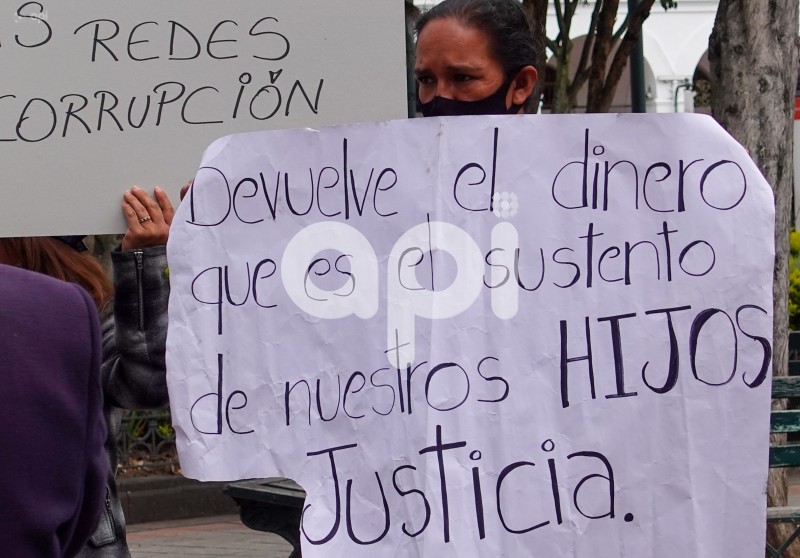 REDES
CORRUPCIÓN
Devuelve el dinero
que es el sustento
de nuestros HIJOS
Justicia.
api